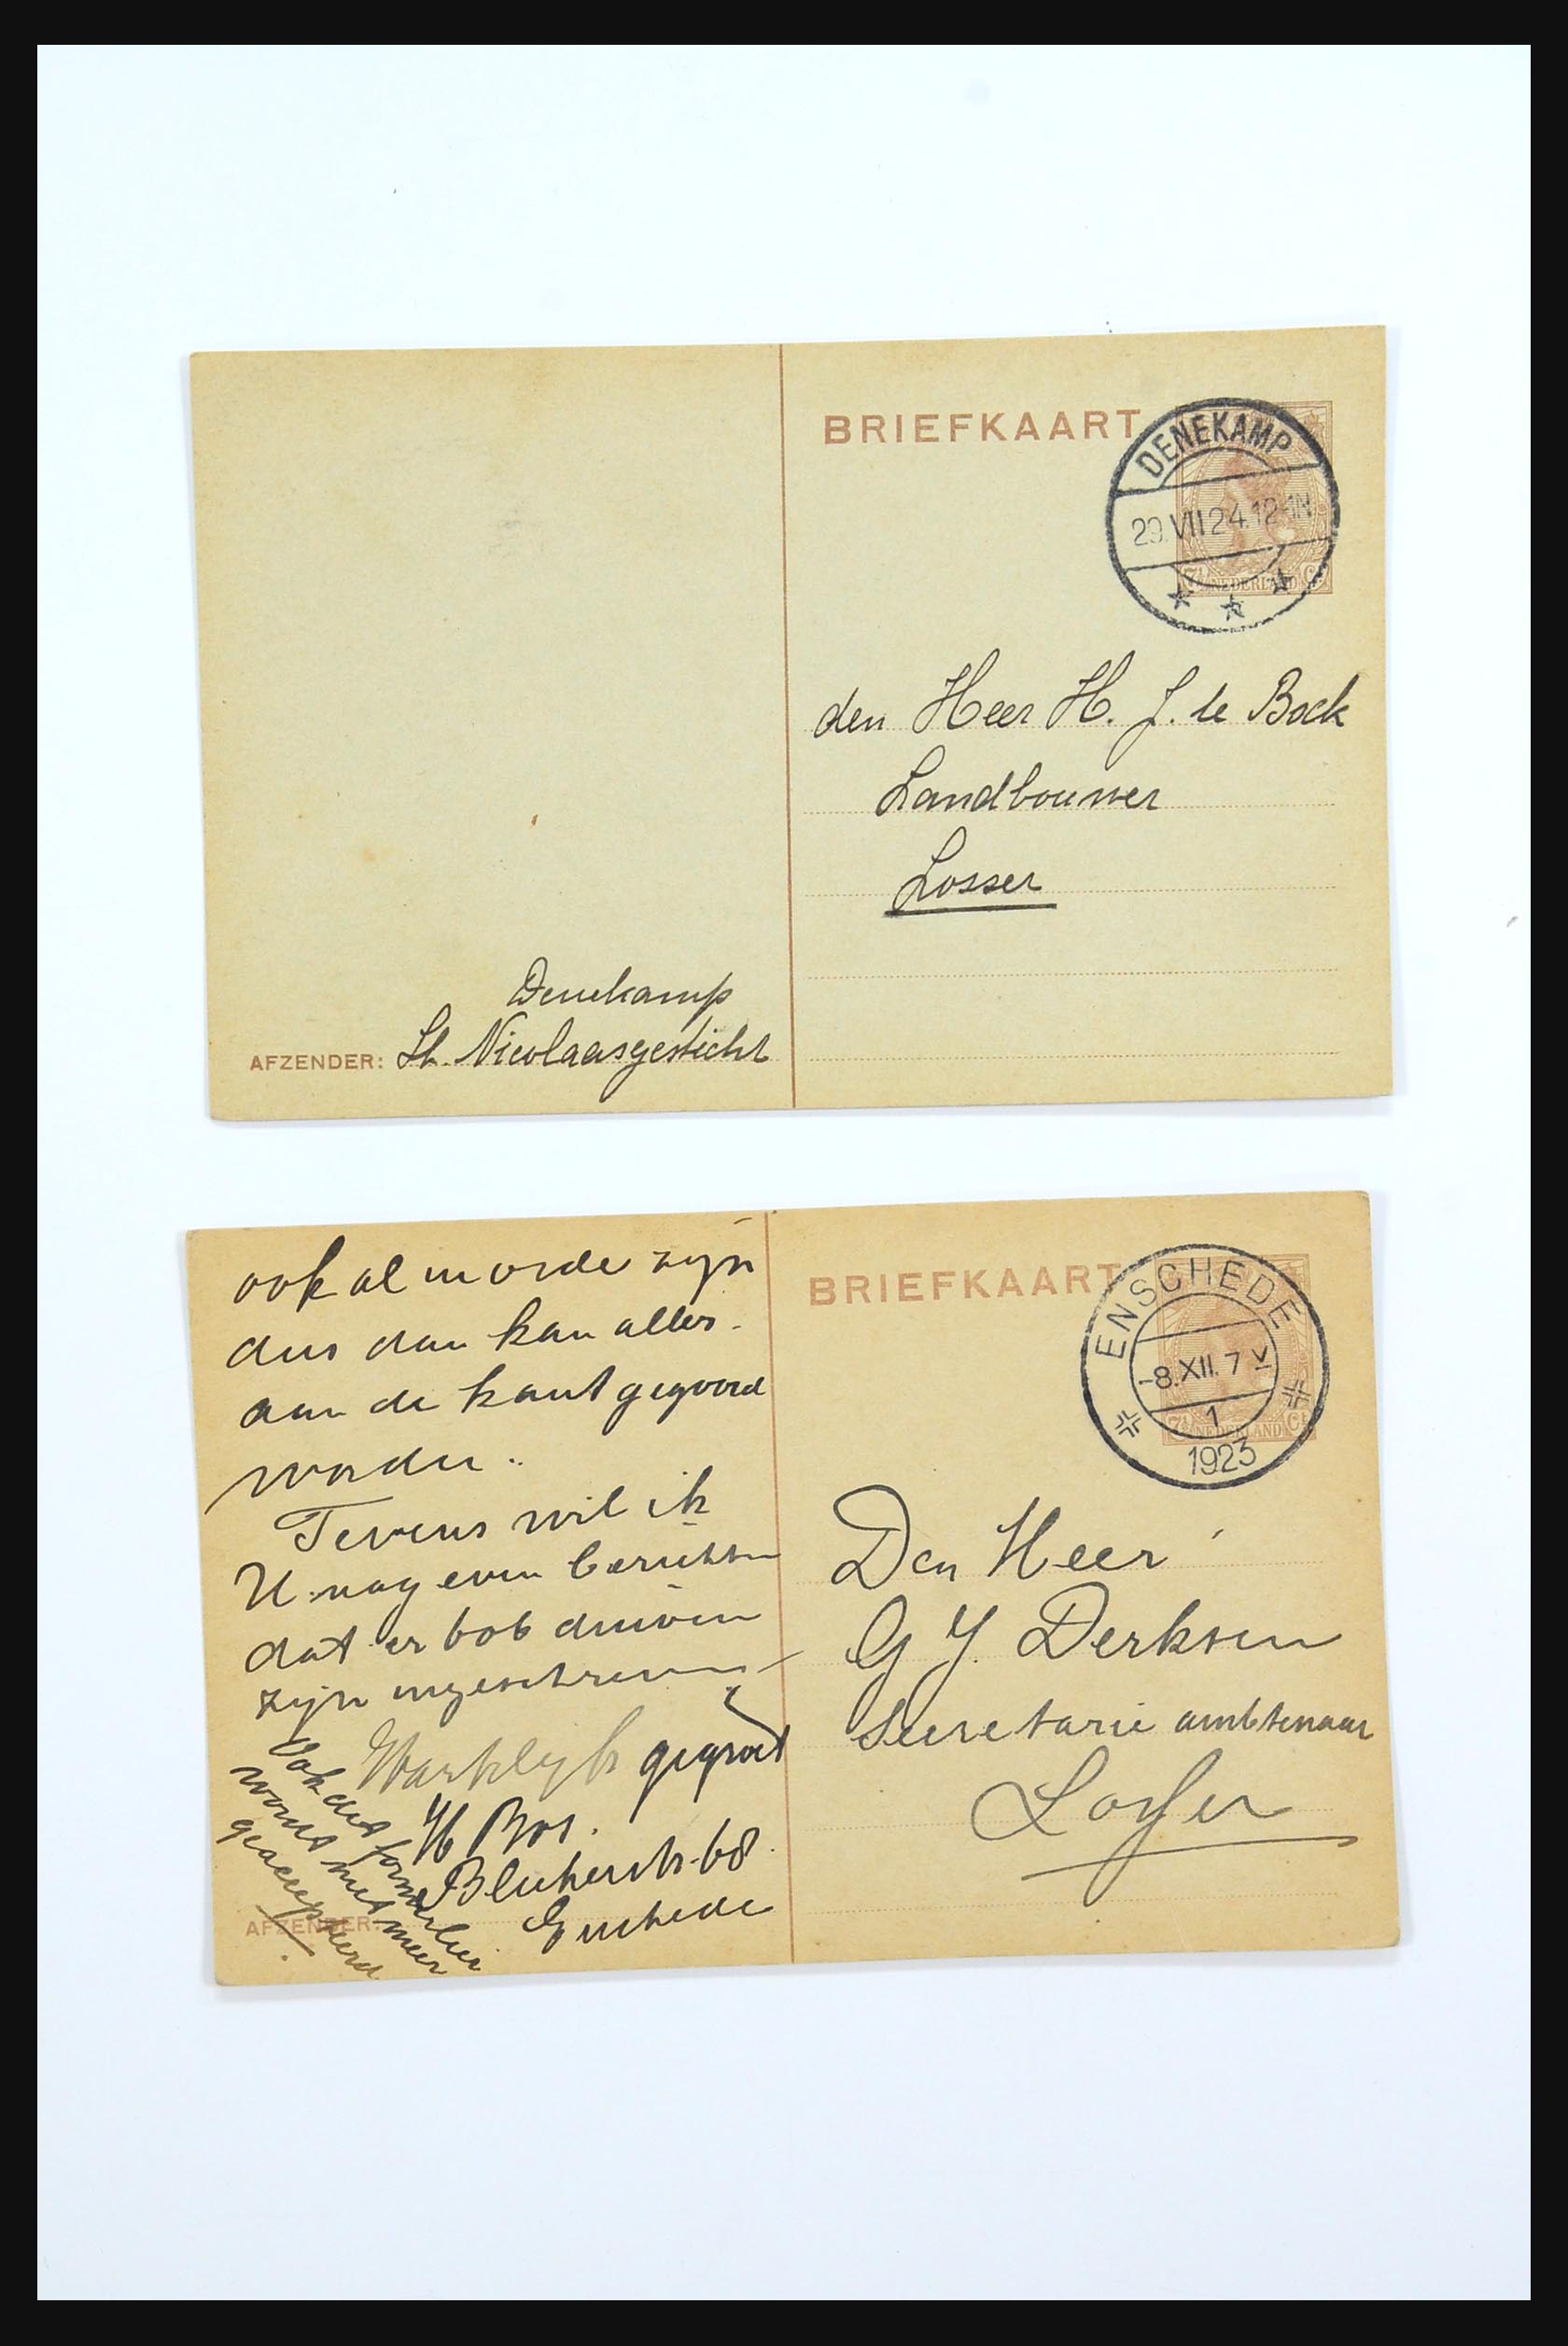 BRIEFKAART
DENEKAMP
29.VII 24.12-1N
7½ NEDERLAND Ct
den Heer H. J. te Bock
Landbouwer
Losser
Denekamp
AFZENDER: St. Nicolaasgesticht
ook al in orde zijn
dus dan kan alles
aan de kant gegooid
worden.
Tevens wil ik
U nog even berichten
dat er bob duiven
zijn ingeschreven
Hartelijk gegroet
H Bos.
Blucherstr. 68
Enschede
Ook dit formulier
wordt niet meer
geaccepteerd
AFZENDER:
BRIEFKAART
ENSCHEDE
-8.XII. 7 V
1
1923
7½ NEDERLAND Ct
Den Heer
G J. Derksen
Secretarie ambtenaar
Losser